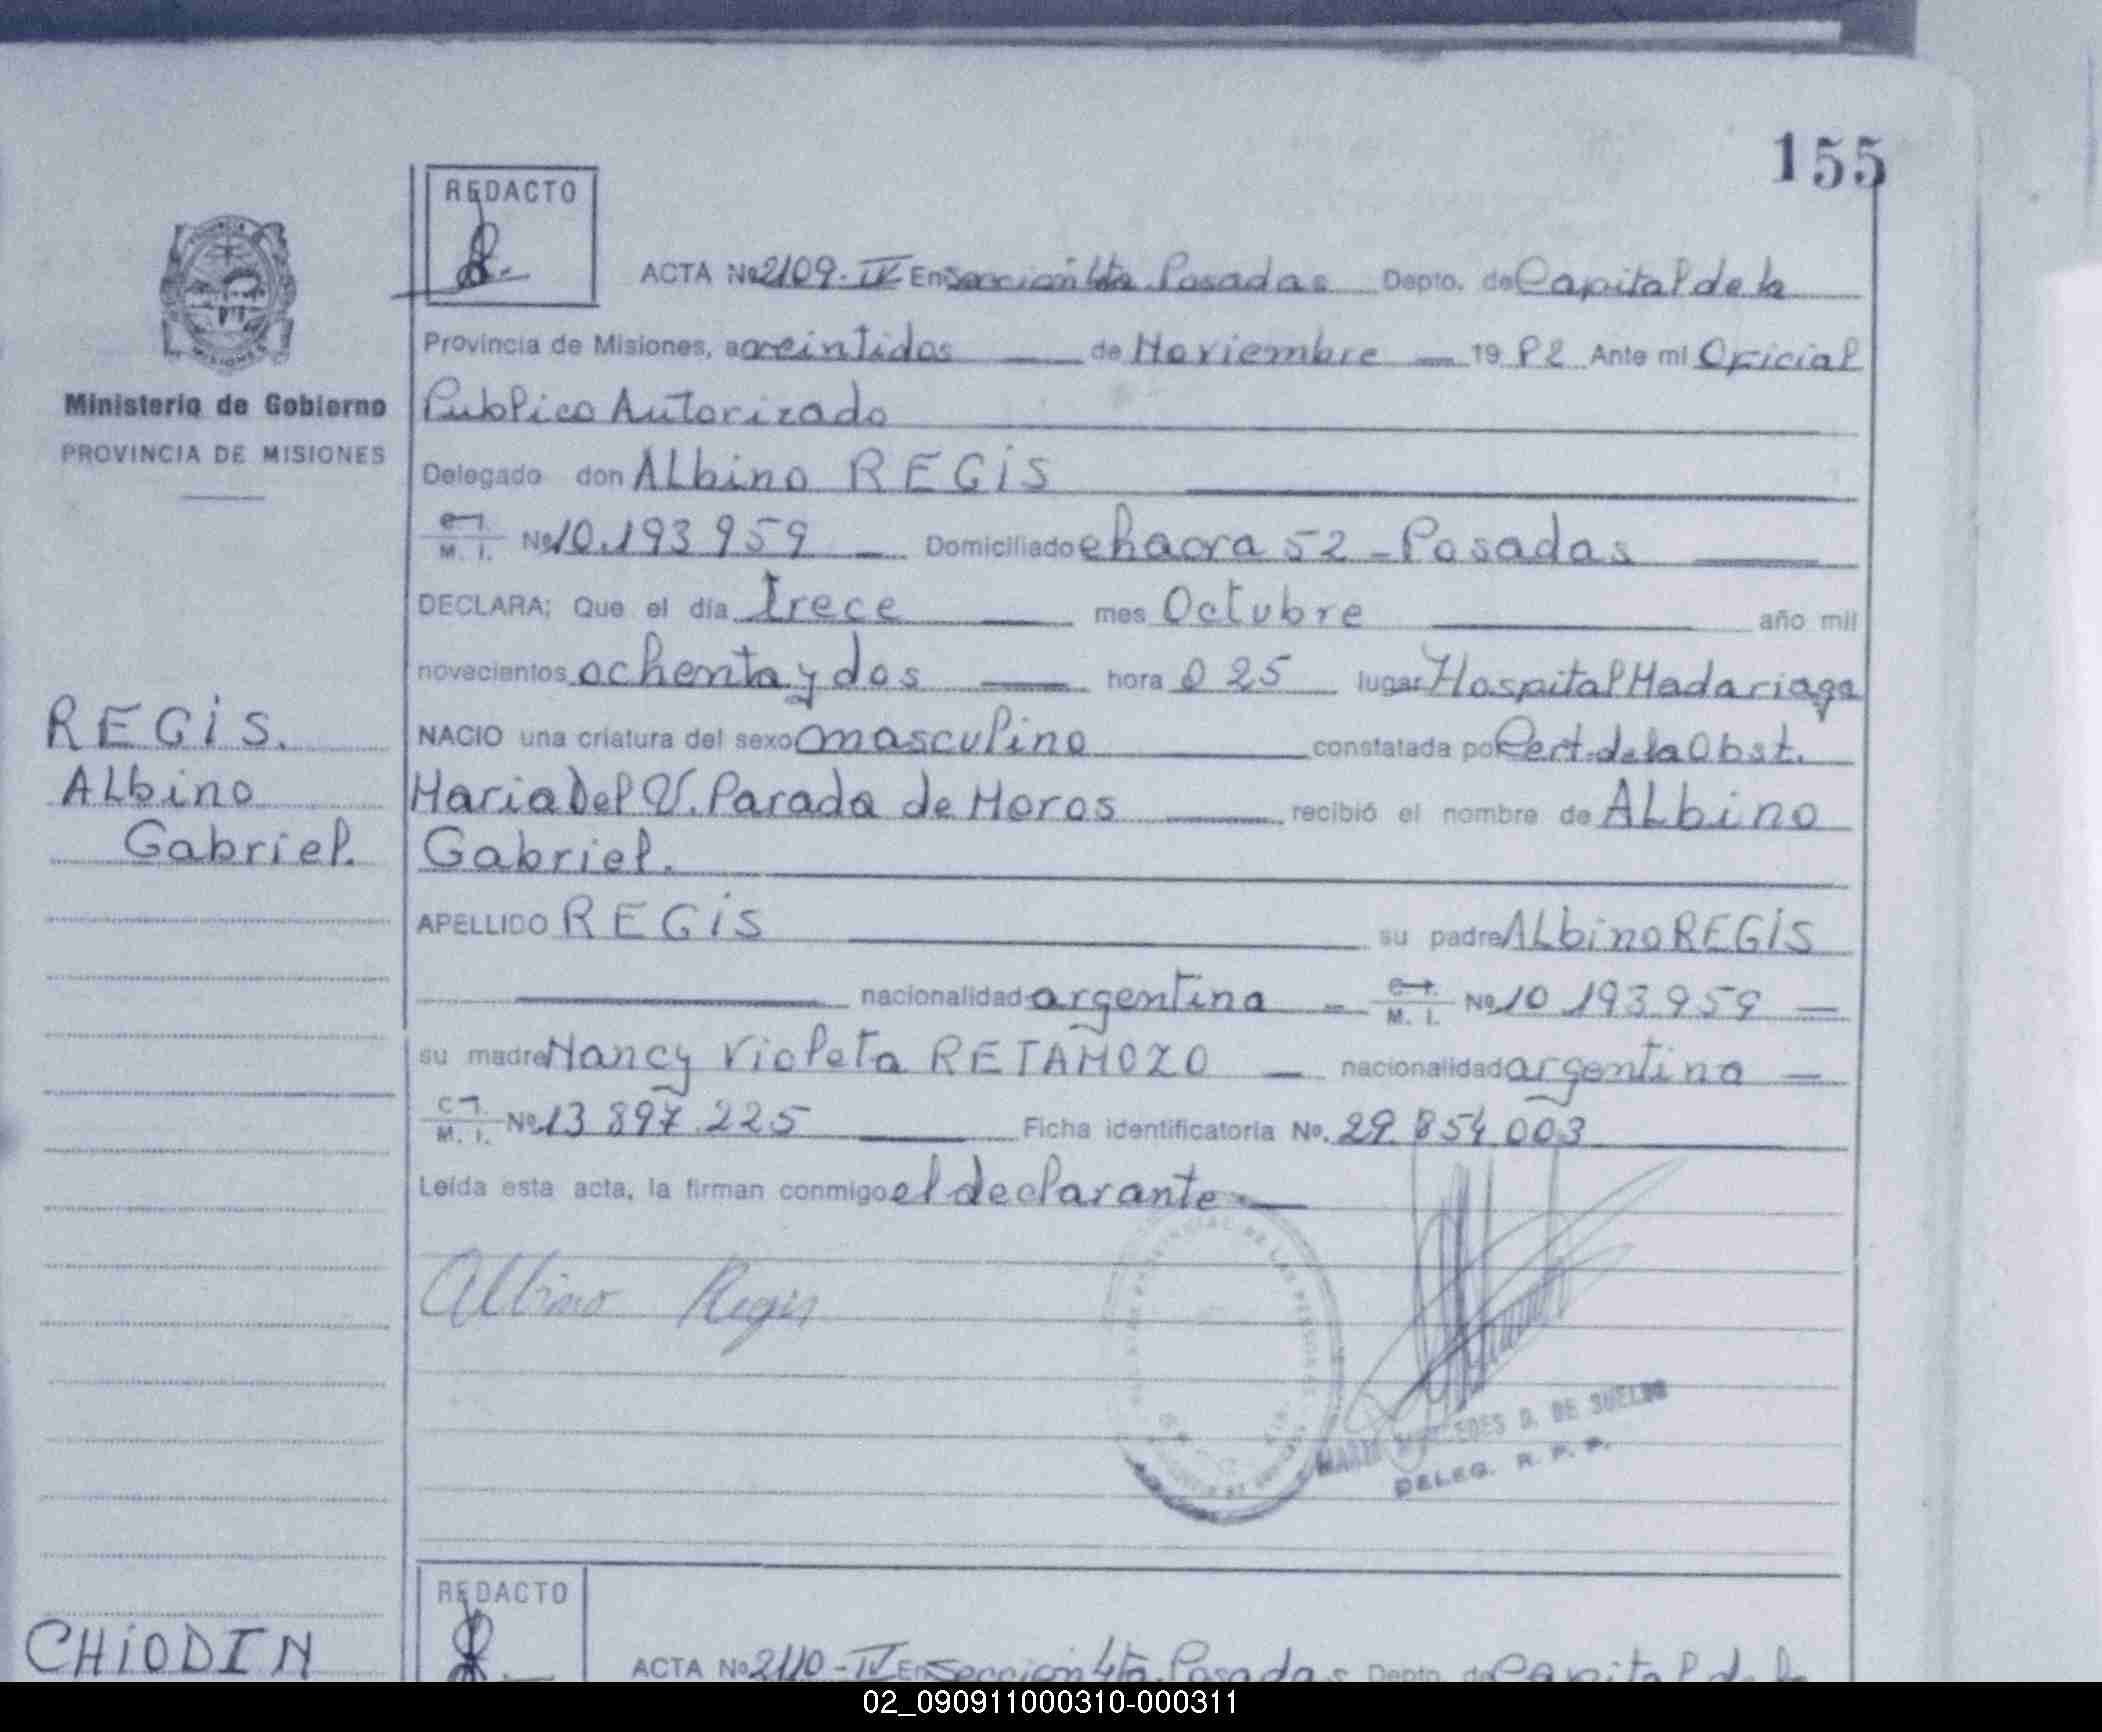 155
REDACTO
ACTA Nº 2109-IV En Sección 4ta. Posadas Depto. de Capital de la
Provincia de Misiones, a veintidos de Noviembre 1982 Ante mi Oficial
Publico Autorizado
Ministerio de Gobierno
PROVINCIA DE MISIONES
Delegado don Albino REGIS
C.I. M. I. Nº 10.193.959 Domiciliado chacra 52 - Posadas
DECLARA; Que el día trece mes Octubre año mil
novecientos ochenta y dos hora 0 25 lugar Hospital Madariaga
REGIS.
Albino
Gabriel.
NACIO una criatura del sexo masculino constatada por Cert. de la Obst.
Maria Del V. Parada de Moros recibió el nombre de Albino
Gabriel.
APELLIDO REGIS su padre Albino REGIS
nacionalidad argentina C.I. M. I. Nº 10 193.959
su madre Nancy Violeta RETAMOZO nacionalidad argentina
C.I. M. I. Nº 13 897.225 Ficha identificatoria Nº. 29.854 003
Leída esta acta, la firman conmigo el declarante
Albino Regis
MARIA MERCEDES D. DE SUELDO
DELEG. R. P. P.
CHIODIN
REDACTO
ACTA Nº 2110-IV En Sección 4ta. Posadas Depto. de Capital de la
02_090911000310-000311